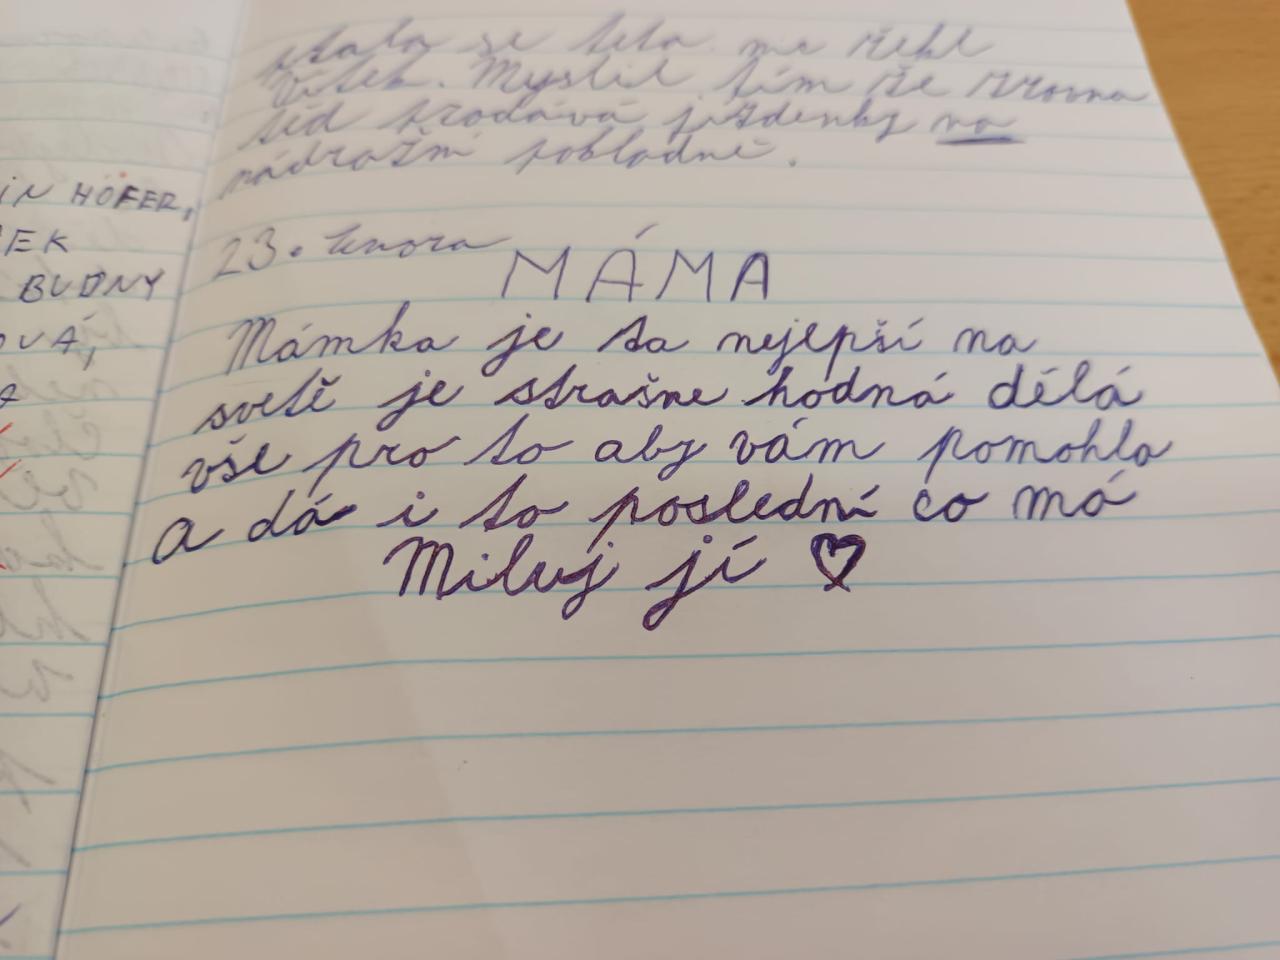 stala se teta. mu řekl
Vítek. Myslil tím že zrovna
teď prodává jízdenky na
nádražní pokladně.
IN HOFER,
EK
BUDNY
OVÁ,
23. února
MÁMA
Mámka je ta nejlepší na
světě je strašne hodná dělá
vše pro to aby vám pomohla
a dá i to poslední co má
Miluj jí ♡